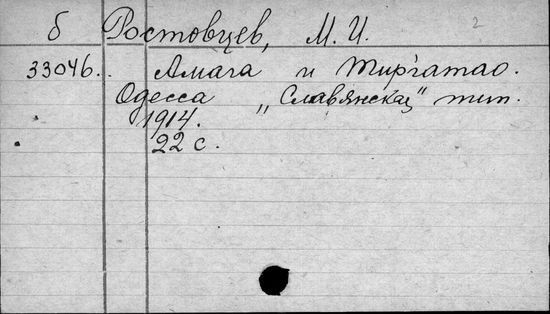 б Ростовцев, М. И. 2
33046. Амага и Тиргатао.
Одесса „Славянская" тип.
1914.
22 с.